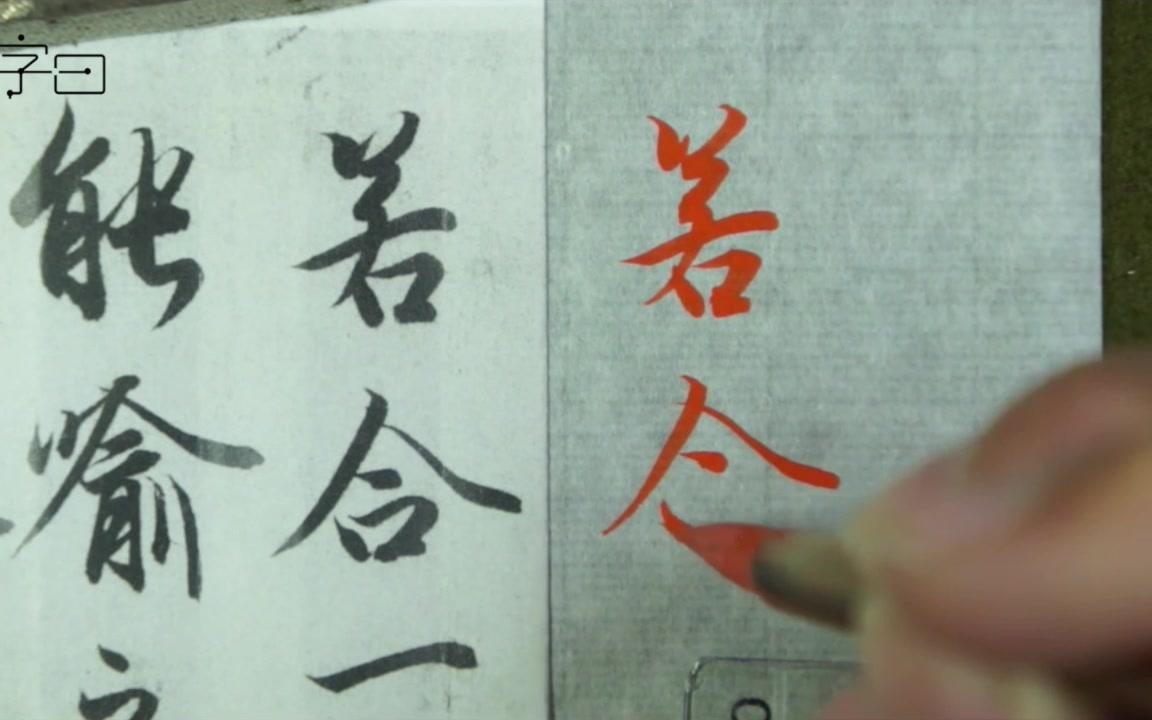 字曰
若
若合一
能喻之